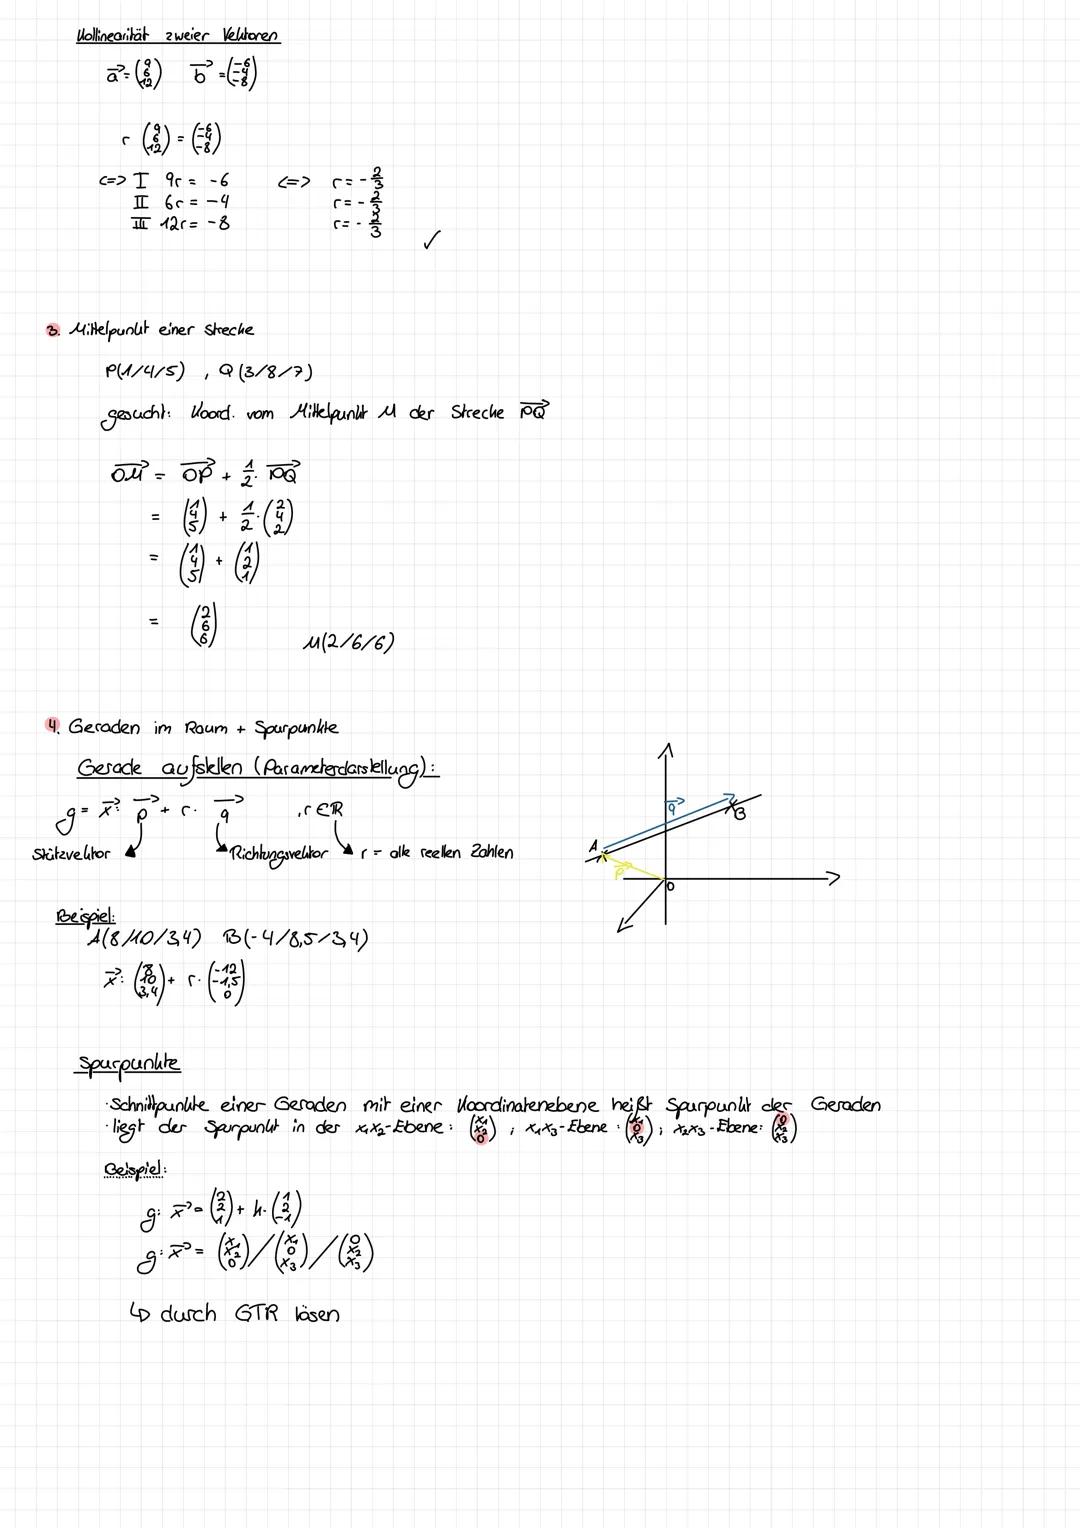 Kollinearität zweier Vektoren
a⃗ = (9 6 12) b⃗ = (-6 -4 -8)
r (9 6 12) = (-6 -4 -8)
<=> I 9r = -6 <=> r = -2/3
II 6r = -4 r = -2/3
III 12r = -8 r = -2/3 ✓
3. Mittelpunkt einer Strecke
P(1/4/5) , Q(3/8/7)
gesucht: Koord. vom Mittelpunkt M der Strecke PQ⃗
OM⃗ = OP⃗ + 1/2 · PQ⃗
= (1 4 5) + 1/2 · (2 4 2)
= (1 4 5) + (1 2 1)
= (2 6 6) M(2/6/6)
4. Geraden im Raum + Spurpunkte
Gerade aufstellen (Parameterdarstellung):
g = x⃗: p⃗ + r · q⃗ , r ∈ ℝ
Stützvektor Richtungsvektor r = alle reellen Zahlen
A B q⃗ p⃗ 0
Beispiel:
A(8/10/3,4) B(-4/8,5/3,4)
x⃗: (8 10 3,4) + r · (-12 -1,5 0)
Spurpunkte
· Schnittpunkte einer Geraden mit einer Koordinatenebene heißt Spurpunkt der Geraden
· liegt der Spurpunkt in der x₁x₂-Ebene: (x₁ x₂ 0) ; x₁x₃-Ebene: (x₁ 0 x₃) ; x₂x₃-Ebene: (0 x₂ x₃)
Beispiel:
g: x⃗ = (2 2 1) + k · (1 2 -1)
g: x⃗ = (x₁ x₂ 0) / (x₁ 0 x₃) / (0 x₂ x₃)
↳ durch GTR lösen